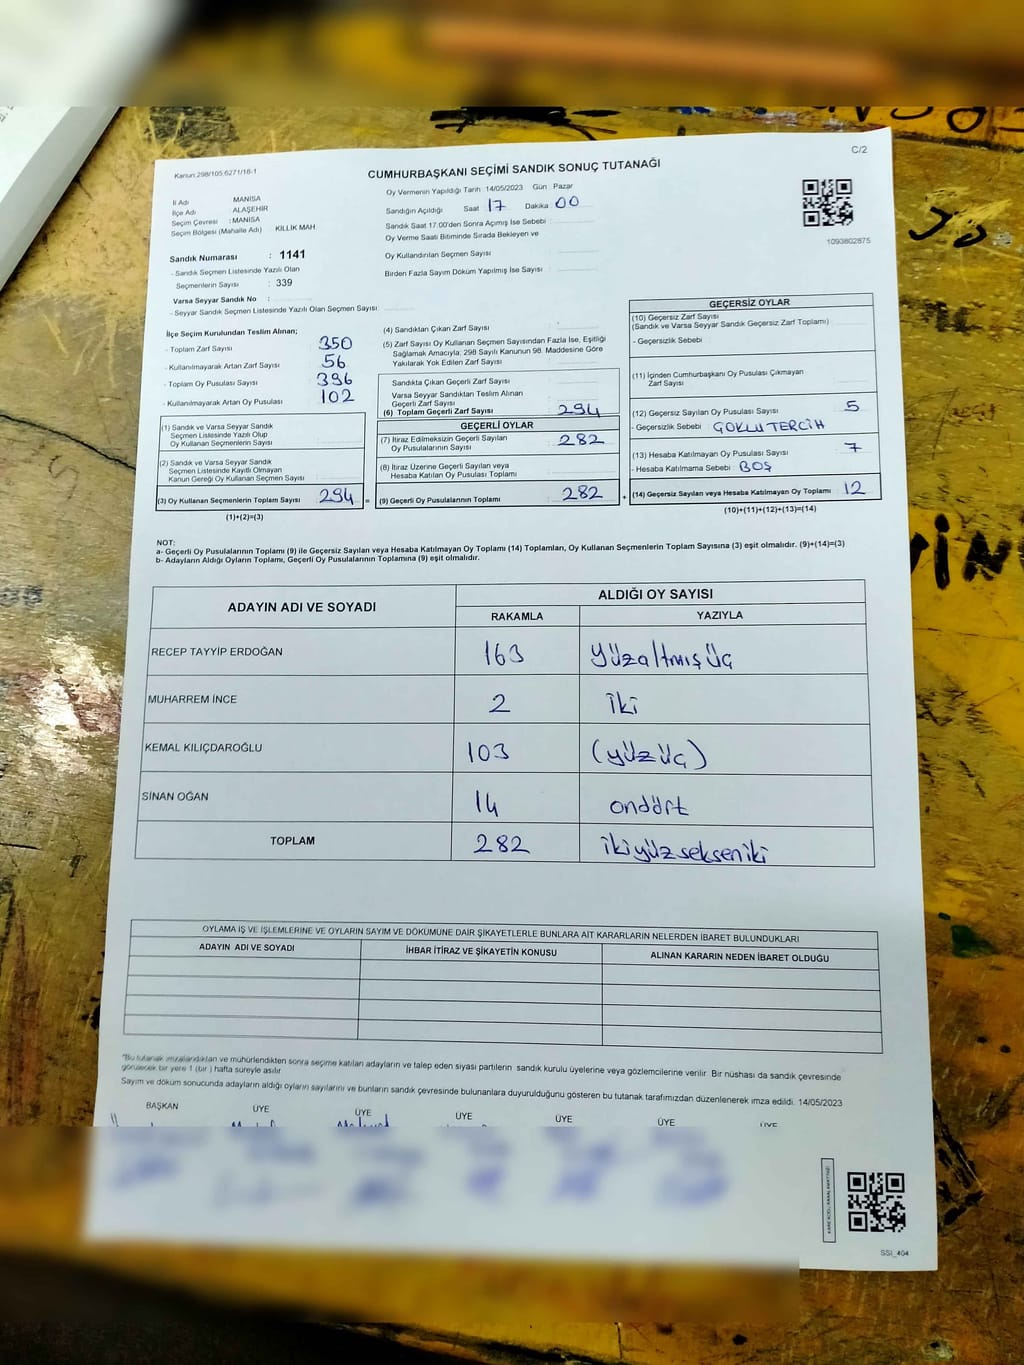 C/2
Kanun:298/105,6271/18-1
CUMHURBAŞKANI SEÇİMİ SANDIK SONUÇ TUTANAĞI
İl Adı MANİSA
İlçe Adı : ALAŞEHİR
Seçim Çevresi : MANİSA
Seçim Bölgesi (Mahalle Adı) KİLLİK MAH
Sandık Numarası : 1141
- Sandık Seçmen Listesinde Yazılı Olan
Seçmenlerin Sayısı : 339
Varsa Seyyar Sandık No :
- Seyyar Sandık Seçmen Listesinde Yazılı Olan Seçmen Sayısı:
Oy Vermenin Yapıldığı Tarih 14/05/2023 Gün Pazar
Sandığın Açıldığı Saat 17 Dakika 00
Sandık Saat 17.00'den Sonra Açımış İse Sebebi :
Oy Verme Saati Bitiminde Sırada Bekleyen ve
Oy Kullandırılan Seçmen Sayısı :
Birden Fazla Sayım Döküm Yapılmış İse Sayısı :
1093802875
İlçe Seçim Kurulundan Teslim Alınan;
- Toplam Zarf Sayısı : 350
- Kullanılmayarak Artan Zarf Sayısı : 56
- Toplam Oy Pusulası Sayısı : 396
- Kullanılmayarak Artan Oy Pusulası : 102
(1) Sandık ve Varsa Seyyar Sandık
Seçmen Listesinde Yazılı Olup
Oy Kullanan Seçmenlerin Sayısı
(2) Sandık ve Varsa Seyyar Sandık
Seçmen Listesinde Kayıtlı Olmayan
Kanun Gereği Oy Kullanan Seçmen Sayısı
(3) Oy Kullanan Seçmenlerin Toplam Sayısı 294 =
(1)+(2)=(3)
(4) Sandıktan Çıkan Zarf Sayısı :
(5) Zarf Sayısı Oy Kullanan Seçmen Sayısından Fazla İse, Eşitliği
Sağlamak Amacıyla; 298 Sayılı Kanunun 98. Maddesine Göre
Yakılarak Yok Edilen Zarf Sayısı :
Sandıkta Çıkan Geçerli Zarf Sayısı :
Varsa Seyyar Sandıktan Teslim Alınan
Geçerli Zarf Sayısı
(6) Toplam Geçerli Zarf Sayısı : 294
GEÇERLİ OYLAR
(7) İtiraz Edilmeksizin Geçerli Sayılan
Oy Pusulasının Sayısı : 282
(8) İtiraz Üzerine Geçerli Sayılan veya
Hesaba Katılan Oy Pusulası Toplamı
(9) Geçerli Oy Pusulalarının Toplamı : 282 +
GEÇERSİZ OYLAR
(10) Geçersiz Zarf Sayısı
(Sandık ve Varsa Seyyar Sandık Geçersiz Zarf Toplamı)
- Geçersizlik Sebebi :
(11) İçinden Cumhurbaşkanı Oy Pusulası Çıkmayan
Zarf Sayısı
(12) Geçersiz Sayılan Oy Pusulası Sayısı : 5
- Geçersizlik Sebebi : ÇOKLU TERCİH
(13) Hesaba Katılmayan Oy Pusulası Sayısı : 7
- Hesaba Katılmama Sebebi : BOŞ
(14) Geçersiz Sayılan veya Hesaba Katılmayan Oy Toplamı : 12
(10)+(11)+(12)+(13)=(14)
NOT:
a- Geçerli Oy Pusulalarının Toplamı (9) ile Geçersiz Sayılan veya Hesaba Katılmayan Oy Toplamı (14) Toplamları, Oy Kullanan Seçmenlerin Toplam Sayısına (3) eşit olmalıdır. (9)+(14)=(3)
b- Adayların Aldığı Oyların Toplamı, Geçerli Oy Pusulalarının Toplamına (9) eşit olmalıdır.
ADAYIN ADI VE SOYADI ALDIĞI OY SAYISI
RAKAMLA YAZIYLA
RECEP TAYYİP ERDOĞAN 163 yüzaltmışüç
MUHARREM İNCE 2 iki
KEMAL KILIÇDAROĞLU 103 (yüzüç)
SİNAN OĞAN 14 ondört
TOPLAM 282 ikiyüzsekseniki
OYLAMA İŞ VE İŞLEMLERİNE VE OYLARIN SAYIM VE DÖKÜMÜNE DAİR ŞİKAYETLERLE BUNLARA AİT KARARLARIN NELERDEN İBARET BULUNDUKLARI
ADAYIN ADI VE SOYADI İHBAR İTİRAZ VE ŞİKAYETİN KONUSU ALINAN KARARIN NEDEN İBARET OLDUĞU
*Bu tutanak imzalandıktan ve mühürlendikten sonra seçime katılan adayların ve talep eden siyasi partilerin sandık kurulu üyelerine veya gözlemcilerine verilir. Bir nüshası da sandık çevresinde
görülecek bir yere 1 (bir) hafta süreyle asılır.
Sayım ve döküm sonucunda adayların aldığı oyların sayılarını ve bunların sandık çevresinde bulunanlara duyurulduğunu gösteren bu tutanak tarafımızdan düzenlenerek imza edildi. 14/05/2023
BAŞKAN ÜYE ÜYE ÜYE ÜYE ÜYE ÜYE
SSİ_404